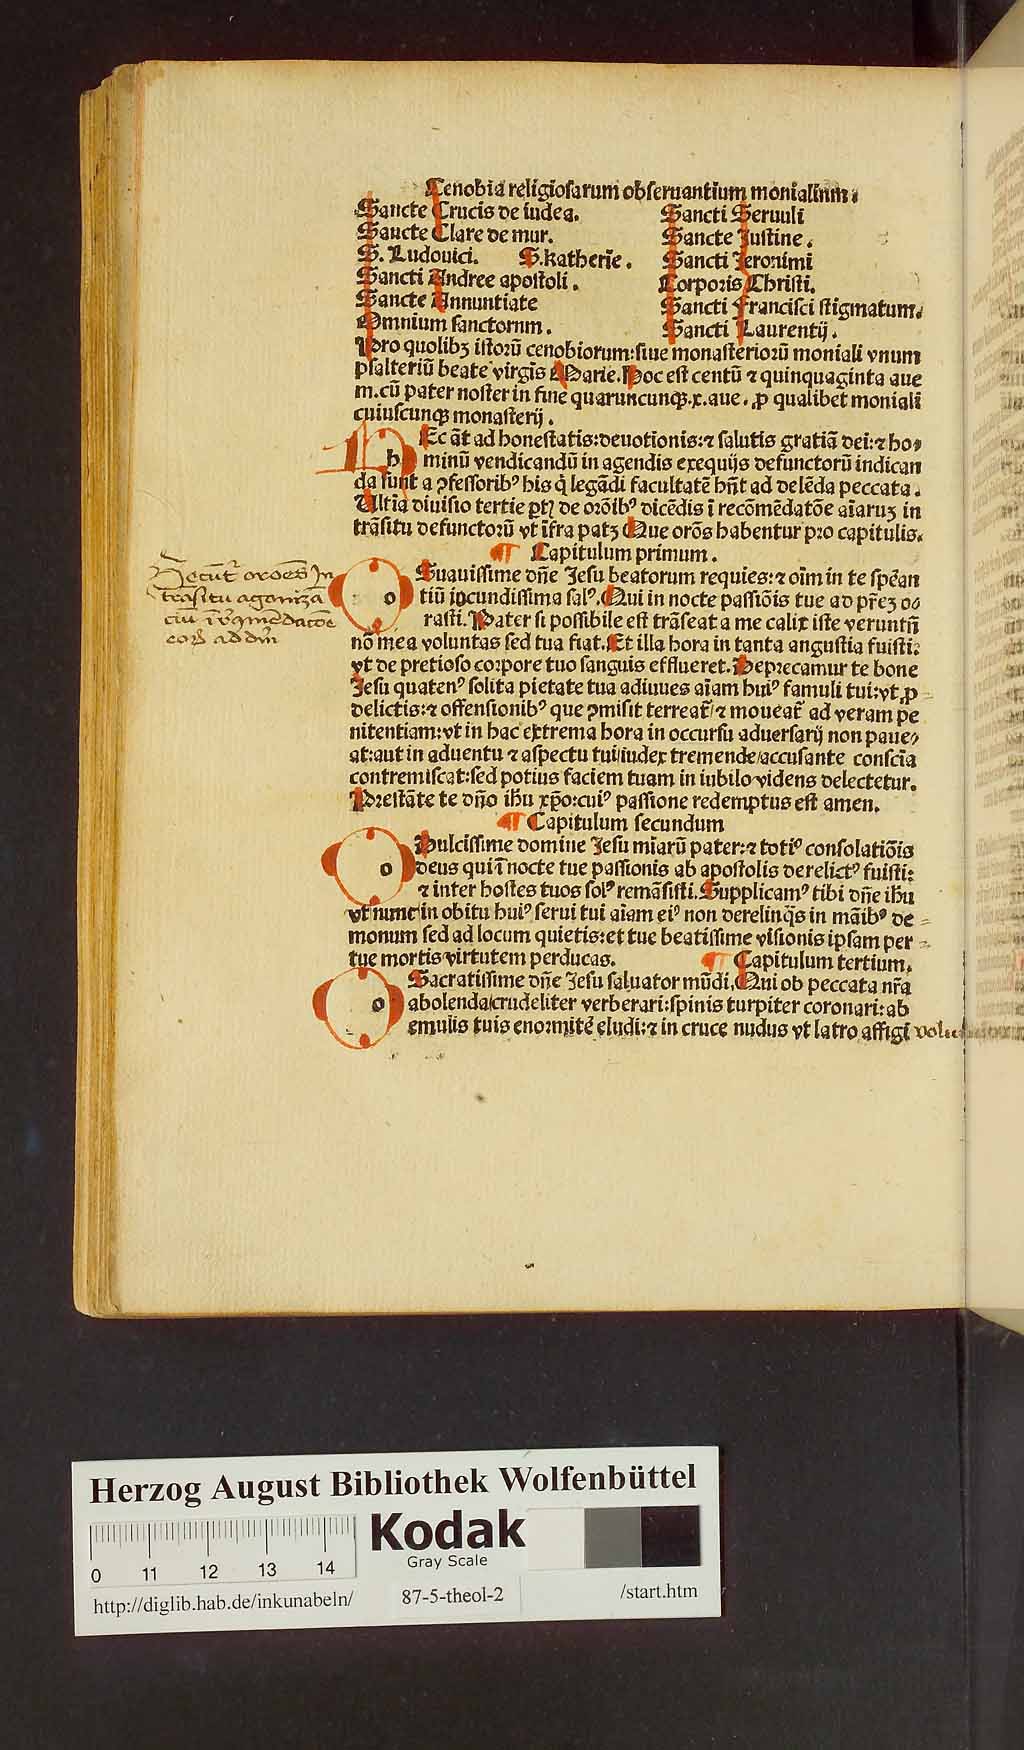 Cenobia religiosarum obseruantium monialinm.
Sancte Crucis de iudea.
Saucte Clare de mur.
S. Ludouici. S. katherīe.
Sancti Andree apostoli.
Sancte Annuntiate
Omnium sanctornm.
Sancti Seruuli
Sancte Justine.
Sancti Jeronimi
Corporis Christi.
Sancti Francisci stigmatum.
Sancti Laurentij.
Pro quolibꝫ istorū cenobiorum: siue monasteriorū moniali vnum
psalteriū beate virgīs Marie. Hoc est centū ⁊ quinquaginta aue
m. cū pater noster in fine quaruncunqꝫ .x. aue. ꝓ qualibet moniali
cuiuscunqꝫ monasterij.
h Ec āt ad honestatis: deuotionis: ⁊ salutis gratiā dei: ⁊ ho⸗
minū vendicandū in agendis exequijs defunctorū indican
da sunt a ꝯfessoribꝰ his q̇ legādi facultatē hn̄t ad delēda peccata.
Vltīa diuisio tertie ꝑtꝭ de orōibꝰ dicēdis ī recōmēdatōe aīaruꝫ in
trāsitu defunctorū vt īfra patꝫ Que orōs habentur pro capitulis.
¶ Capitulum primum.
Secūt̄ oroēs In
trāsitu agonizā
ciū
eorꝝ ad dm̄
o Suauissime dn̄e Jesu beatorum requies: ⁊ oīm in te spēan
tiū iocundissima salꝰ. Qui in nocte passiōis tue ad pr̄eꝫ oo
rasti. Pater si possibile est trāseat a me calix iste veruntn̄
nō mea voluntas sed tua fiat. Et illa hora in tanta angustia fuisti:
vt de pretioso corpore tuo sanguis efflueret. Deprecamur te bone
Jesu quatenꝰ solita pietate tua adiuues aīam huiꝰ famuli tui: vt ꝓ
delictis: ⁊ offensionibꝰ que ꝯmisit terreat̄ / ⁊ moueat̄ ad veram pe
nitentiam: vt in hac extrema hora in occursu aduersarij non paue⸗
at: aut in aduentu ⁊ aspectu tui / iudex tremende / accusante conscīa
contremiscat: sed potius faciem tuam in iubilo videns delectetur.
Prestāte te dn̄o ihū xp̄o: cuiꝰ passione redemptus est amen.
¶ Capitulum secundum
o Pulcissime domine Jesu miarū pater: ⁊ totiꝰ consolatiōis
deus qui ī nocte tue passionis ab apostolis derelictꝰ fuisti:
⁊ inter hostes tuos solꝰ remāsisti. Supplicamꝰ tibi dn̄e ihū
vt nunc in obitu huiꝰ serui tui aīam eiꝰ non derelinq̄s in māibꝰ de
monum sed ad locum quietis: et tue beatissime visionis ipsam per
tue mortis virtutem perducas. ¶ Capitulum tertium.
o Sacratissime dn̄e Jesu saluator mūdi. Qui ob peccata nr̄a
abolenda / crudeliter verberari: spinis turpiter coronari: ab
emulis tuis enormitē eludi: ⁊ in cruce nudus vt latro affigi
Herzog August Bibliothek Wolfenbüttel
Kodak
Gray Scale
0 11 12 13 14
http://diglib.hab.de/inkunabeln/ 87-5-theol-2 /start.htm